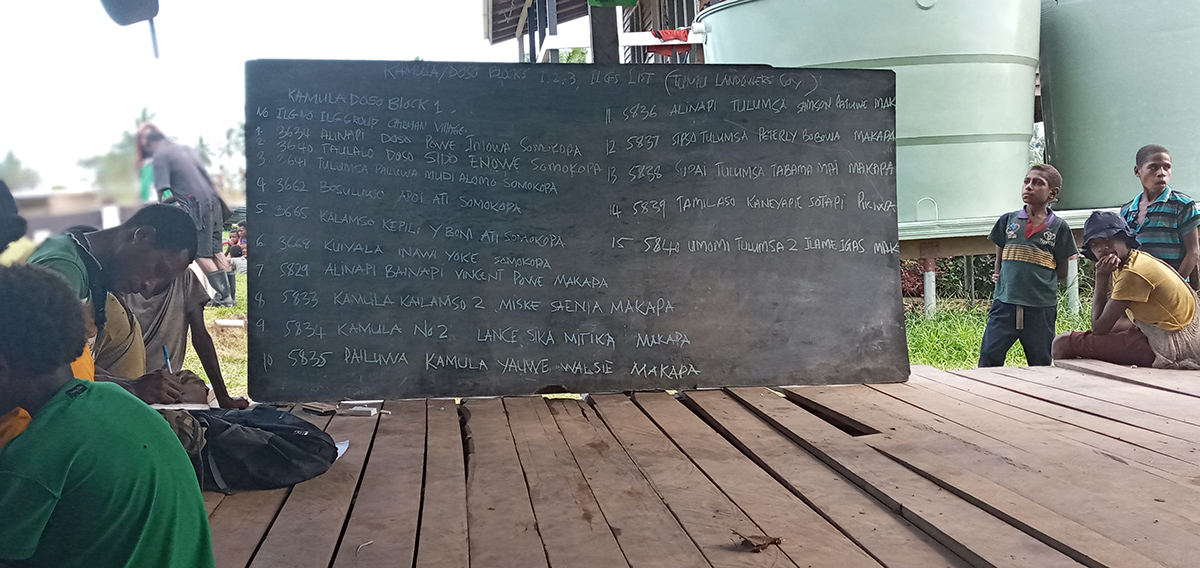 KAMULA/DOSO BLOCKS 1, 2, 3, ILGS LIST (TUMU LANDOWNERS COY.)
KAMULA DOSO BLOCK 1.
NO ILG NO ILG GROUP CHAIRMAN VILLAGE.
1. 3634 ALINAPI DOSO POWE IMOWA SOMOKOPA
2 3640 TAULALO DOSO SIDO ENOWE SOMOKOPA
3. 3641 TULUMSA PAILUWA MUDI ALOMO SOMOKOPA
4 3662 BOSULUWO APOI ATI SOMOKOPA
5 3665 KALAMSO KEPILI Y BONI ATI SOMOKOPA
6 3669 KUIYALA INAWI YOKE SOMOKOPA
7 5829 ALINAPI BAINAPI VINCENT POWE MAKAPA
8 5833 KAMULA KAILAMSO 2 MISKE SAENIA MAKAPA
9 5834 KAMULA No 2 LANCE SIKA MITIKA MAKAPA
10 5835 PAILUWA KAMULA YAUWE WALSIE MAKAPA
11 5836 ALINAPI TULUMSA SAMSON MAK
12 5837 SIPSO TULUMSA PETERLY BOBOWA MAKAPA
13 5838 SIPAI TULUMSA TABAMA MAI MAKAPA
14 5839 TAMILASO KANEYAPIE SOTAPI
15 5840 UMOMI TULUMSA 2 ILAME IGAS MAK